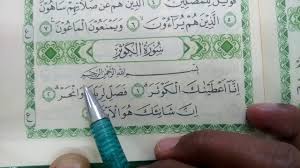 فَوَيْلٌ لِّلْمُصَلِّينَ
الَّذِينَ هُمْ عَن صَلَاتِهِمْ سَاهُونَ
الَّذِينَ هُمْ يُرَاءُونَ ۝٦ وَيَمْنَعُونَ الْمَاعُونَ ۝٧
سُورَةُ الْكَوْثَرِ
بِسْمِ اللَّهِ الرَّحْمَٰنِ الرَّحِيمِ
إِنَّا أَعْطَيْنَٰكَ الْكَوْثَرَ ۝١ فَصَلِّ لِرَبِّكَ وَانْحَرْ ۝٢
إِنَّ شَانِئَكَ هُوَ